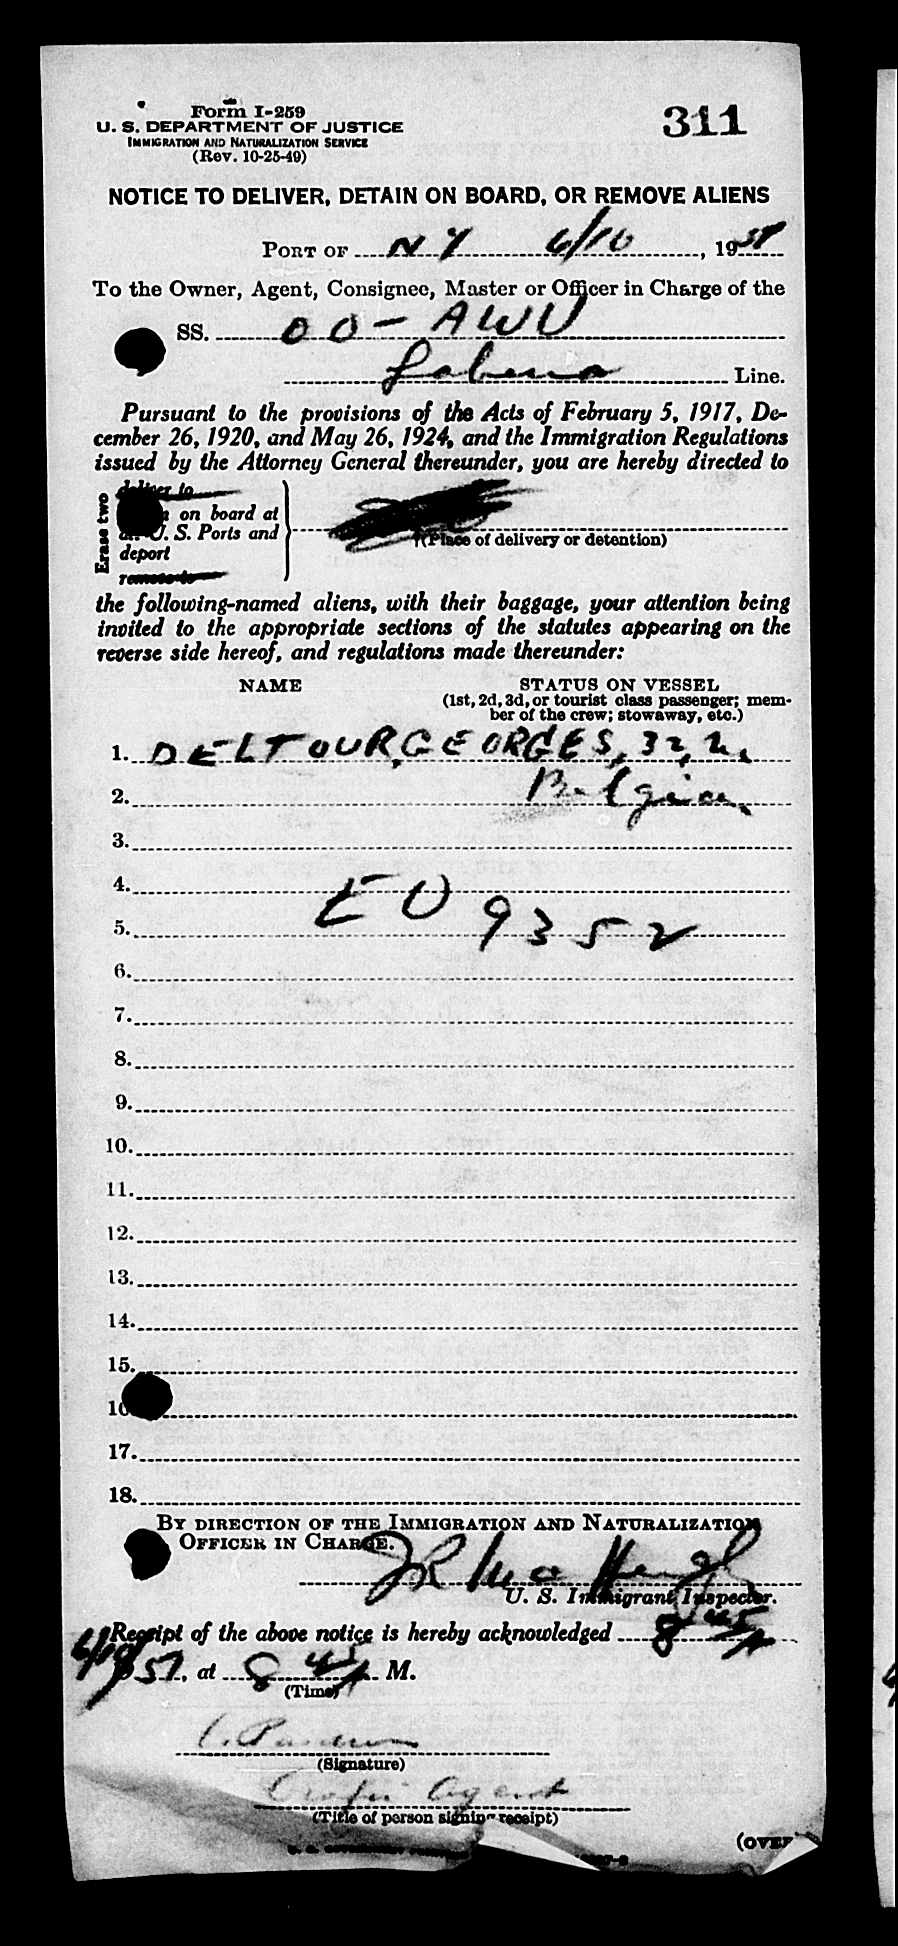 Form I-259
U. S. DEPARTMENT OF JUSTICE
IMMIGRATION AND NATURALIZATION SERVICE
(Rev. 10-25-49)
311
NOTICE TO DELIVER, DETAIN ON BOARD, OR REMOVE ALIENS
PORT OF NY 6/10, 1951
To the Owner, Agent, Consignee, Master or Officer in Charge of the
SS. OO-AWV
Sabena Line.
Pursuant to the provisions of the Acts of February 5, 1917, De-
cember 26, 1920, and May 26, 1924, and the Immigration Regulations
issued by the Attorney General thereunder, you are hereby directed to
Erase two
deliver to
on board at
U. S. Ports and
deport
remove to
(Place of delivery or detention)
the following-named aliens, with their baggage, your attention being
invited to the appropriate sections of the statutes appearing on the
reverse side hereof, and regulations made thereunder:
NAME STATUS ON VESSEL
(1st, 2d, 3d, or tourist class passenger; mem-
ber of the crew; stowaway, etc.)
1. DELTOUR, GEORGES, 32,
2. Belgian
3.
4. EO
5. 9352
6.
7.
8.
9.
10.
11.
12.
13.
14.
15.
16
17.
18.
BY DIRECTION OF THE IMMIGRATION AND NATURALIZATION
OFFICER IN CHARGE.
U. S. Immigrant Inspector.
Receipt of the above notice is hereby acknowledged 8 45 A
6/10/51, at 8 45 A M.
(Time)
(Signature)
Agent
(Title of person signing receipt)
(OVER